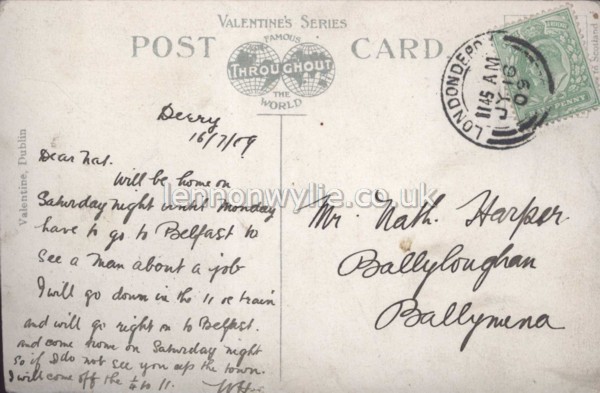 VALENTINE'S SERIES
POST CARD
FAMOUS
THROUGHOUT
THE
WORLD
LONDONDERRY
11 45 AM
JY 16
09
PENNY
Valentine, Dublin
lennonwylie.co.uk
Derry
16/7/09
Dear Nat.
Will be home on
Saturday night until Monday
have to go to Belfast to
see a man about a job
I will go down in the 11 oc train
and will go right on to Belfast.
and come home on Saturday night
so if I do not see you up the town.
I will come off the 1/4 to 11.
Mr. Nath. Harper.
Ballyloughan
Ballymena